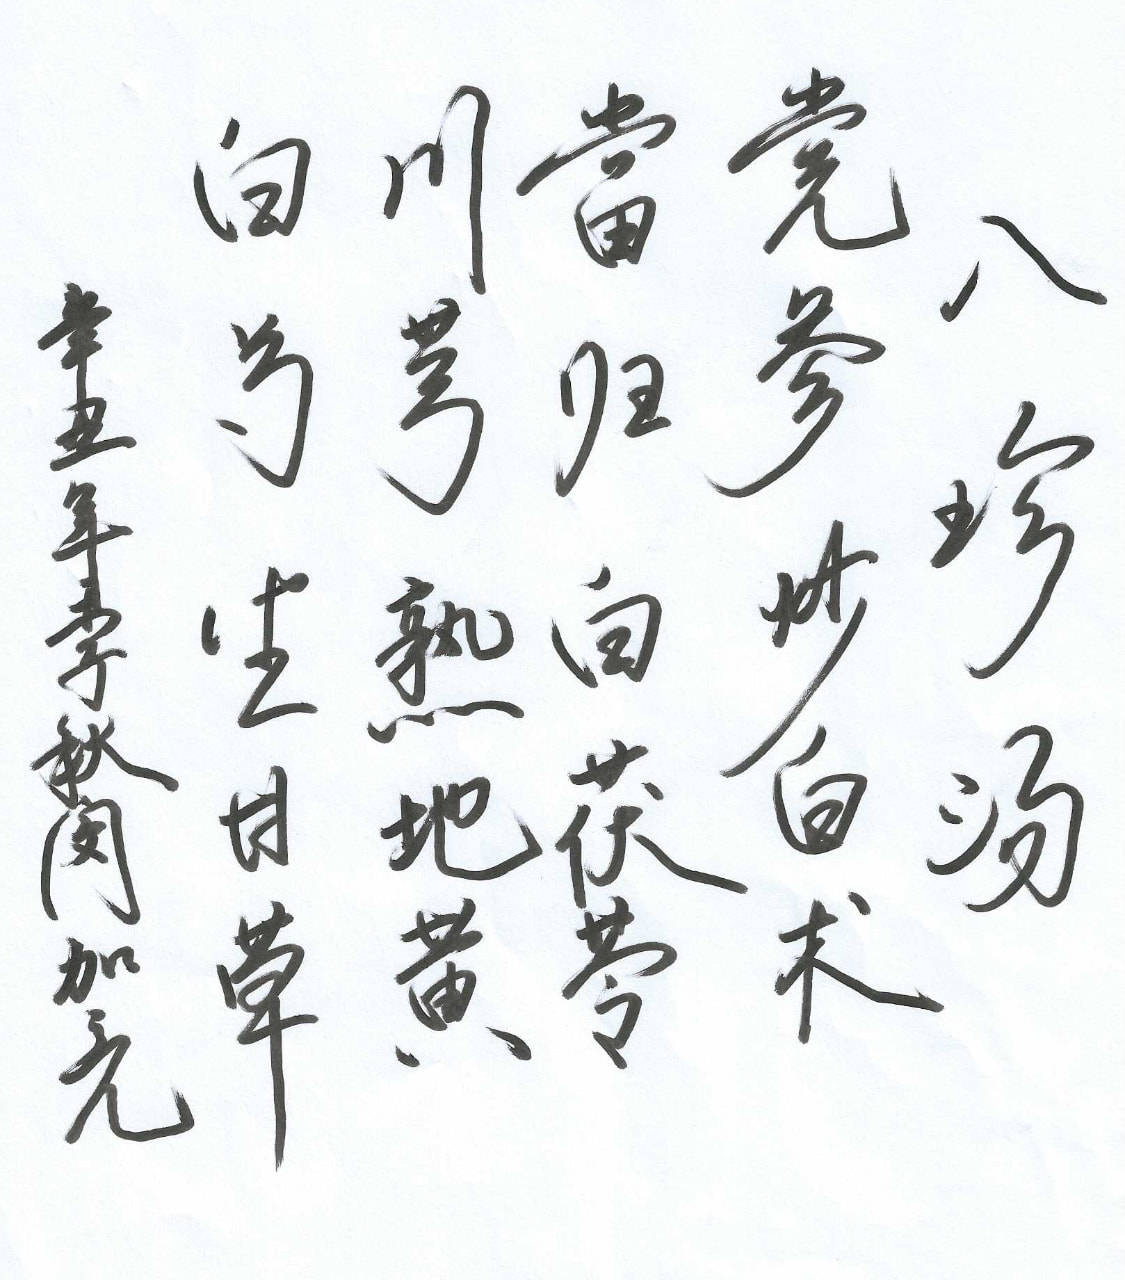 八珍汤
党参炒白术
當归白茯苓
川芎熟地黄
白芍生甘草
辛丑年季秋闵加元